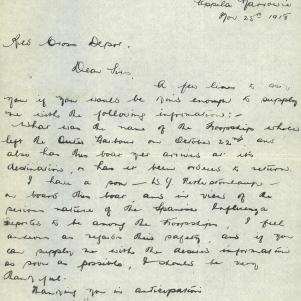 Appila Yarrowie
Nov. 25th 1918
Red Cross Depot.
Dear Sirs,
A few lines to ask
you if you would be kind enough to supply
me with the following information:-
What was the name of the Troopship which
left the Outer Harbour on October 22nd and
also has this boat yet arrived at its
destination, or has it been ordered to return.
I have a son - W. J.
on board this boat and in view of the
serious nature of the Spanish Influenza
reported to be among the Troopships I feel
anxious as regards their safety and if you
can supply me with the desired information
as soon as possible, I should be very
thankful.
Thanking you in anticipation